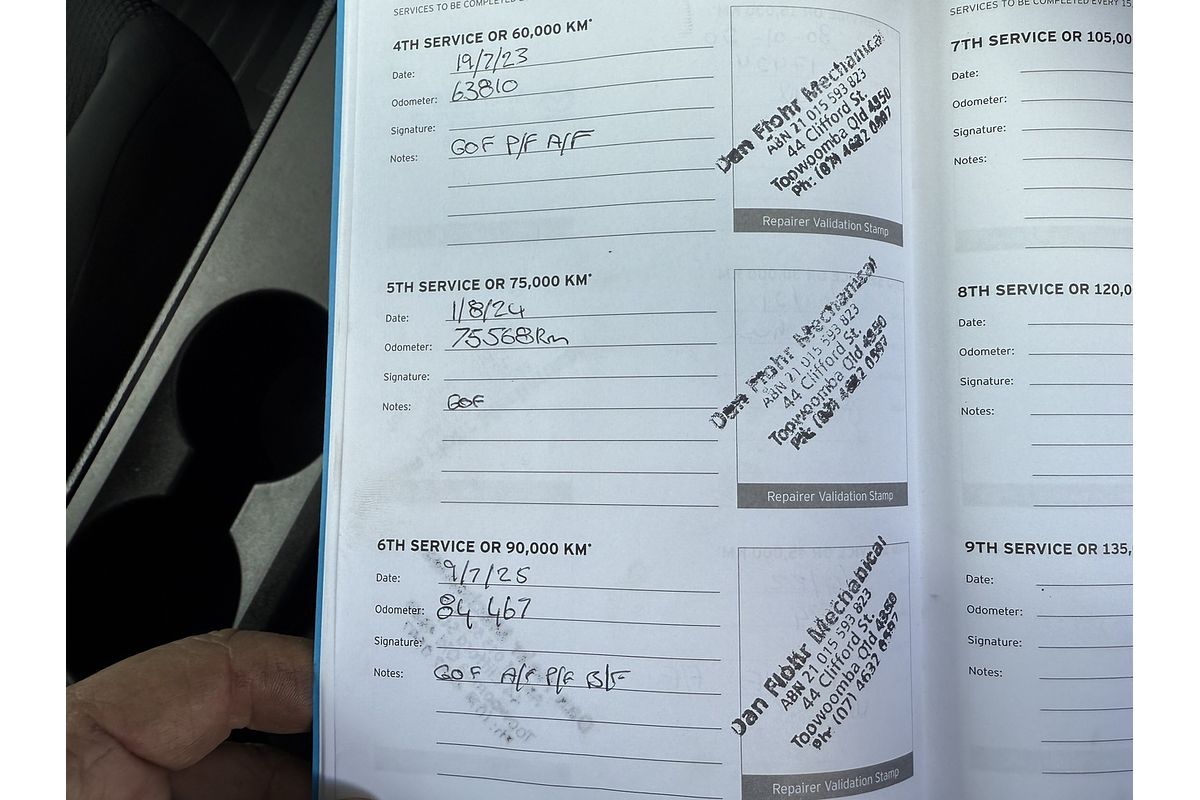 SERVICES TO BE COMPLETED
4TH SERVICE OR 60,000 KM*
Date: 19/7/23
Odometer: 63810
Signature:
Notes: GOF P/F A/F
Dan Flohr Mechanical
ABN 21 015 593 823
44 Clifford St.
Toowoomba Qld 4350
Ph: (07) 4632 0597
Repairer Validation Stamp
5TH SERVICE OR 75,000 KM*
Date: 1/8/24
Odometer: 75568Km
Signature:
Notes: GOF
Dan Flohr Mechanical
ABN 21 015 593 823
44 Clifford St.
Toowoomba Qld 4350
Ph: (07) 4632 0597
Repairer Validation Stamp
6TH SERVICE OR 90,000 KM*
Date: 9/7/25
Odometer: 84 467
Signature:
Notes: GOF A/F P/F B/F
Dan Flohr Mechanical
ABN 21 015 593 823
44 Clifford St.
Toowoomba Qld 4350
Ph: (07) 4632 0597
Repairer Validation Stamp
SERVICES TO BE COMPLETED EVERY 15,
7TH SERVICE OR 105,00
Date:
Odometer:
Signature:
Notes:
8TH SERVICE OR 120,0
Date:
Odometer:
Signature:
Notes:
9TH SERVICE OR 135,
Date:
Odometer:
Signature:
Notes: